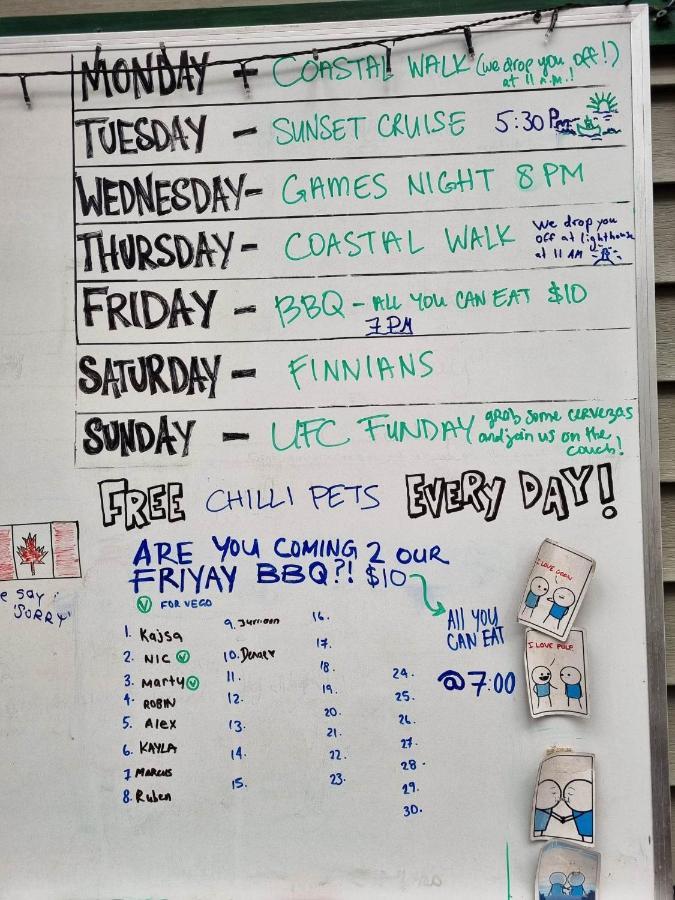 MONDAY - COASTAL WALK (we drop you off!)
at 11 A.M.!
TUESDAY - SUNSET CRUISE 5:30 Pm
WEDNESDAY - GAMES NIGHT 8 PM
THURSDAY - COASTAL WALK we drop you
off at lighthouse
at 11 AM
FRIDAY - BBQ - ALL YOU CAN EAT $10
7 PM
SATURDAY - FINNIANS
SUNDAY - UFC FUNDAY grab some cervezas
and join us on the
couch!
FREE CHILLI PETS EVERY DAY!
ARE YOU COMING 2 OUR
FRIYAY BBQ?! $10
V FOR VEGO
ALL YOU
CAN EAT
@ 7:00
e say:
"SORRY"
1. Kajsa
2. NIC V
3. Marty V
4. ROBIN
5. Alex
6. KAYLA
7 MARCUS
8. Ruben
9.
10.
11.
12.
13.
14.
15.
16.
17.
18.
19.
20.
21.
22.
23.
24.
25.
26.
27.
28.
29.
30.
I LOVE
I LOVE PULP